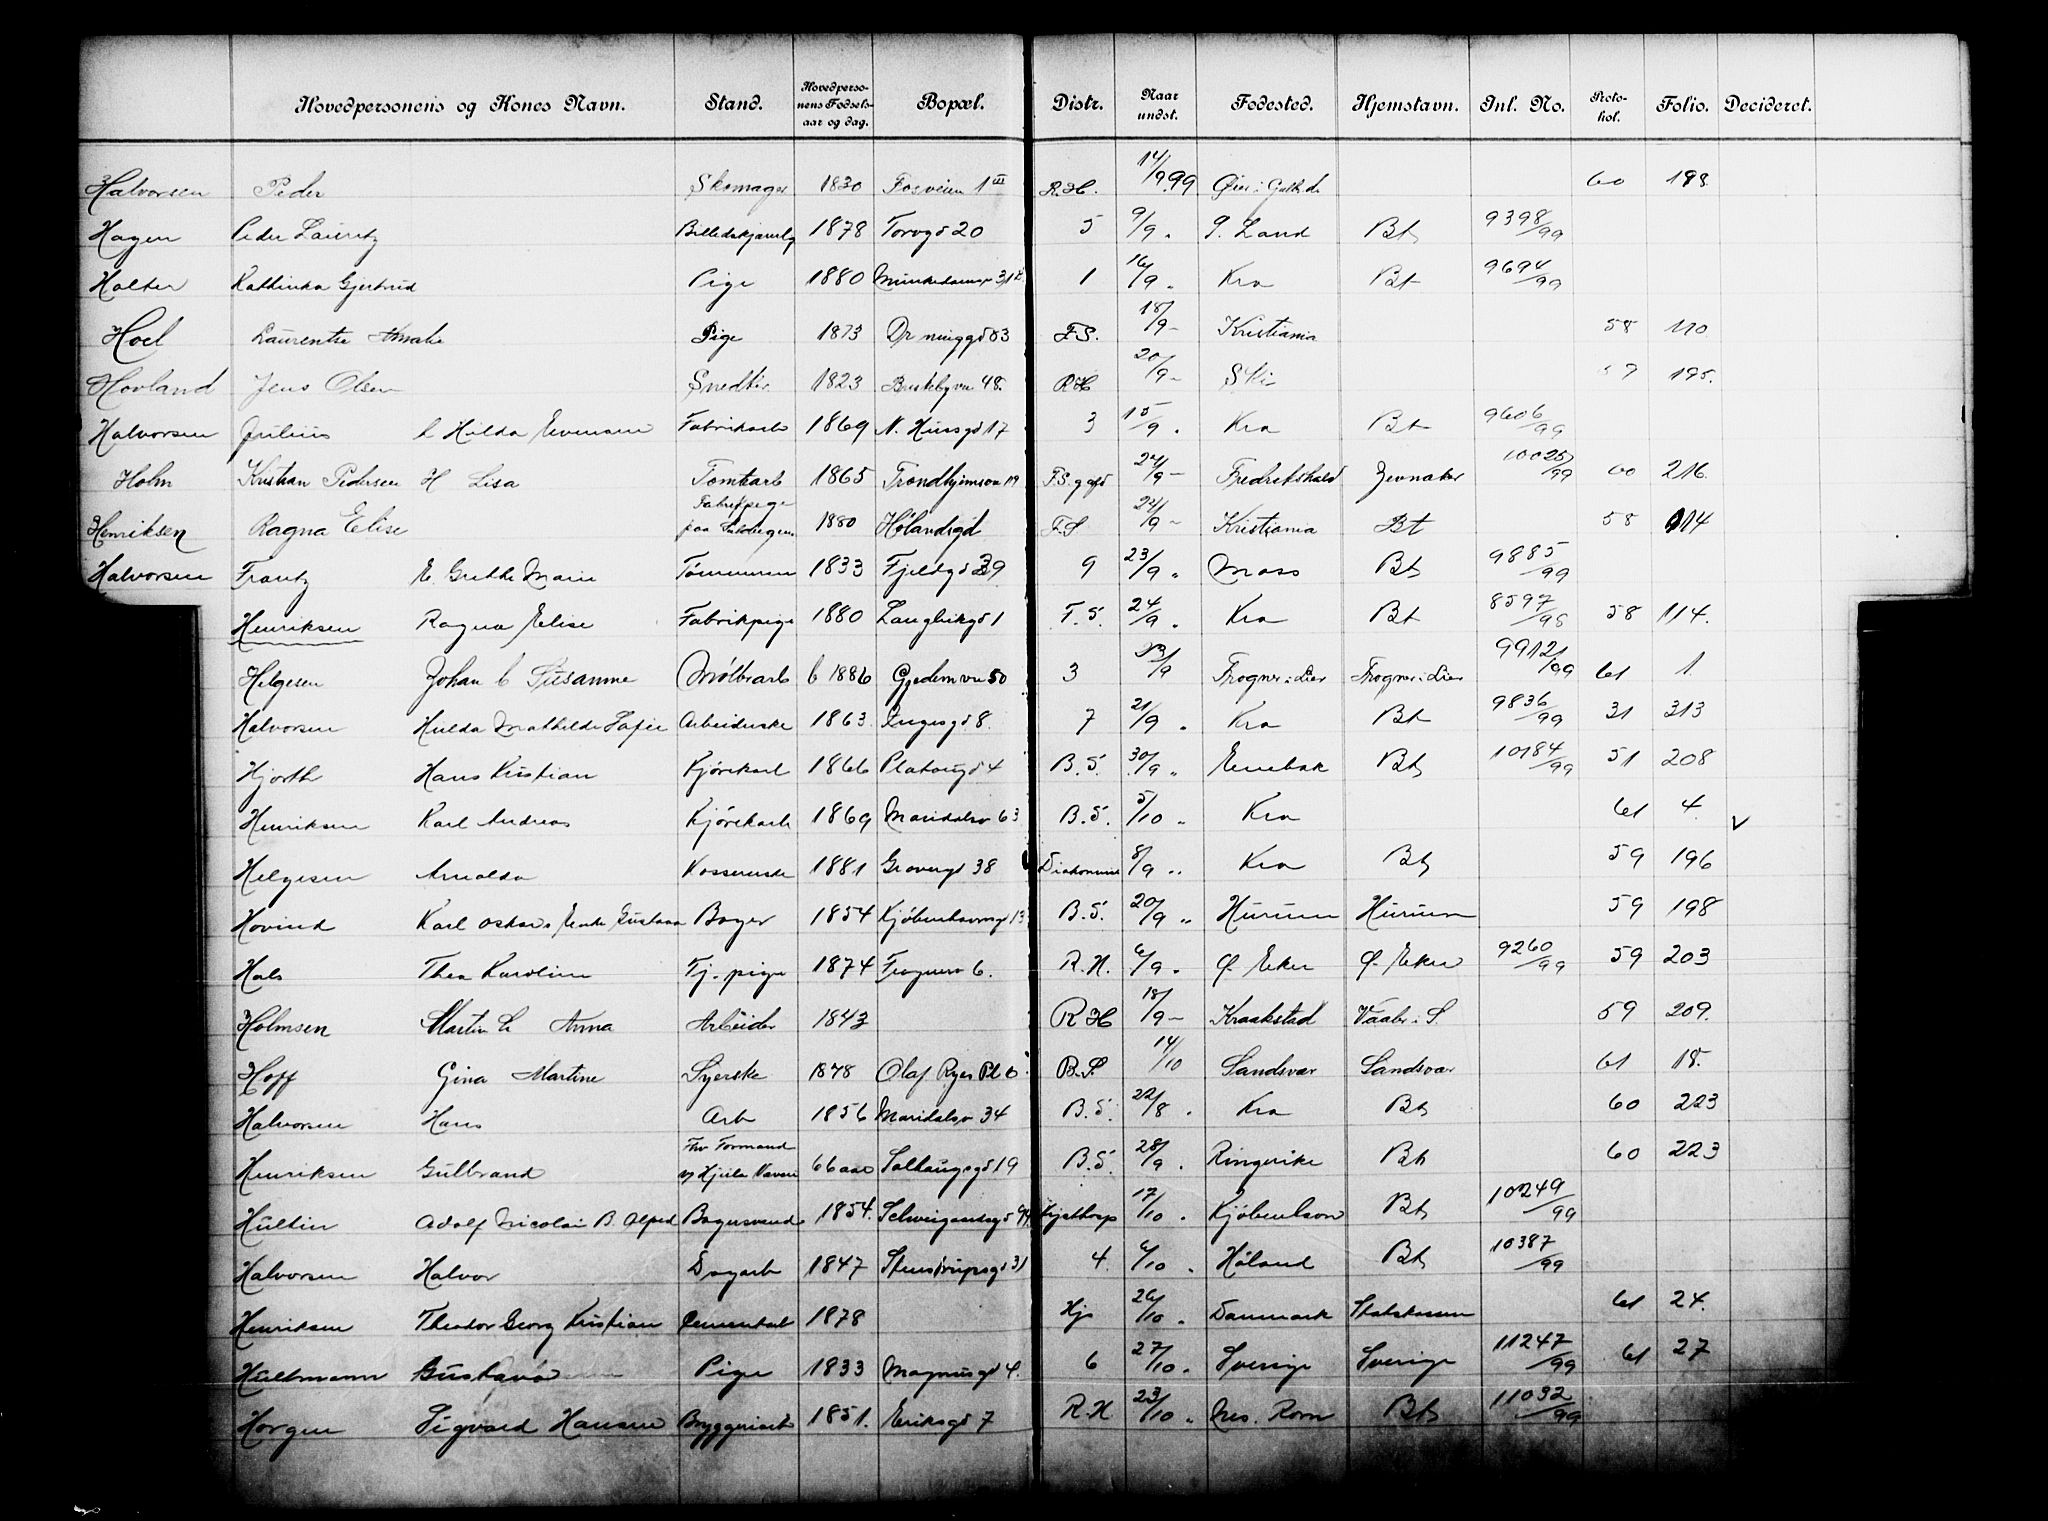 Hovedpersonens og Kones Navn. Stand. Hovedpersonens Fødselsaar og dag. Bopæl. Distr. Naar undst. Fødested. Hjemstavn. Inl. No. Protokol. Folio. Decideret.
Halvorsen Peder Skomager 1830 Fosveien 1 III R.H. 14/9.99 60 193.
Hagen Peder Lauritz 1878 Torvgd 20 5 9/9 „ S. Land Bt 9398/99
Halter Kathinka Gjertrud Pige 1880 1 16/9 „ Kra Bt 9694/99
Hoel Laurentze Amalie Pige 1873 F.S. 18/9 – Kristiania 58 110.
Hovland Jens Olsen Snedker 1823 48. R.H 20/9 – Ski 195.
Halvorsen Julius & Hilda Evensen Fabrikarb 1869 N. Hussgd 17 3 15/9 „ Kra Bt 9606/99
Holm Kristian Pedersen H Lisa Tomtearb 1865 Trondhjemsv 19 F.S. 24/9 – Fredrikshald Jevnaker 10025/99 60 216.
Henriksen Ragna Elise Fabrikpige 1880 Hølandsgd F.S 22/9 – Kristiania Bt 58 114
Halvorsen Frantz E. Grethe Marie Tømmerm 1833 Fjeldgd 39 9 23/9 „ Moss Bt 9885/99
Henriksen Ragna Elise Fabrikpige 1880 Langleikgd 1 F.S. 24/9 „ Kra Bt 8597/98 58 114.
Helgesen Johan & Susanne Møllearb 1886 Gjedemsvn 50 3 23/9 Frogner i Lier Frogner i Lier 9912/99 61 1.
Halvorsen Hulda Mathilde Sofie Arbeiderske 1863. Ingesgd 8. 7 21/9 „ Kra Bt 9836/99 31 313
Hjorth Hans Kristian Kjørekarl 1866 Platougd 4 B.S. 30/9 „ Enebak Bt 10184/99 51 208
Henriksen Karl Andreas Kjørekarl 1869 Maridalsv 63 B.S. 5/10 „ Kra 61 4.
Helgesen Arnalda 1881 38 Diakoniss 8/9 „ Kra Bt 59 196
Hovind Karl Oskars Enke Gustava Bager 1854 Kjøbenhavnsgd 13 B.S. 20/9 „ Hurum Hurum 59 198
Hals Thea Karoline Tj.pige 1874 Frognerv 6. R.H. 6/9 „ Ø. Eker Ø. Eker 9260/99 59 203
Holmsen Martin & Anna Arbeider 1843 R H 18/9 – Kraakstad Vaaler i S. 59 209.
Hoff Gina Martine Syerske 1878 Olaf Ryes Pl 6 B.S. 14/10 Sandsvær Sandsvær 61 18.
Halvorsen Hans Arb 1856 Maridalsv 34 B.S. 22/8 „ Kra Bt 60 223
Henriksen Gulbrand Fhv Formand 66 aar 19 B.S. 28/9 „ Ringerike Bt 60 223
Hultin Adolf Nicolai B. Alfred Bagersvend 1854. Schweigaardsgd 17/10 „ Kjøbenhavn Bt 10249/99
Halvorsen Halvor Dagarb 1847 Stenstrupsgd 31 4. 6/10 „ Høland Bt 10387/99
Henriksen Theodor Georg Kristian Cementarb 1878 Hjs 26/10 „ Danmark Statskassen 61 24.
Hultmann Gustava Pige 1833 Magnusgd 4. 6 27/10 „ Sverige Sverige 11247/99 61 27
Horgen Sigvard Hansen Bryggeriarb 1851. Eriksgd 7 R.H 23/10 „ Nes. Rom Bt 11032/99